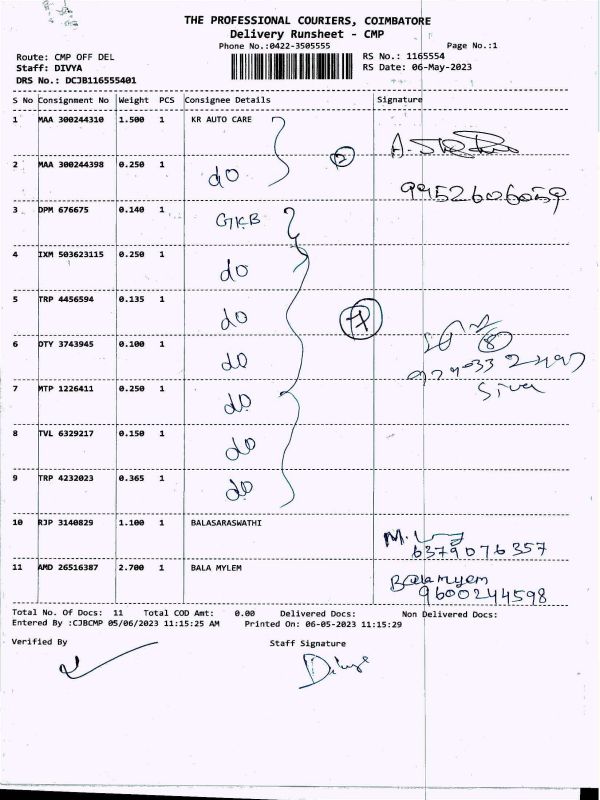 THE PROFESSIONAL COURIERS, COIMBATORE
Delivery Runsheet - CMP
Phone No.:0422-3505555
Page No.:1
Route: CMP OFF DEL
RS No.: 1165554
Staff: DIVYA
RS Date: 06-May-2023
DRS No.: DCJB116555401
S No Consignment No Weight PCS Consignee Details Signature
1 MAA 300244310 1.500 1 KR AUTO CARE
2 MAA 300244398 0.250 1 do
2
9952606059
3 DPM 676675 0.140 1 GKB
4 IXM 503623115 0.250 1 do
5 TRP 4456594 0.135 1 do
7
6 DTY 3743945 0.100 1 do
8
Siva
7 MTP 1226411 0.250 1 do
8 TVL 6329217 0.150 1 do
9 TRP 4232023 0.365 1 do
10 RJP 3140829 1.100 1 BALASARASWATHI
6379076357
11 AMD 26516387 2.700 1 BALA MYLEM
Bala Myem
9600244598
Total No. Of Docs: 11 Total COD Amt: 0.00 Delivered Docs: Non Delivered Docs:
Entered By :CJBCMP 05/06/2023 11:15:25 AM Printed On: 06-05-2023 11:15:29
Verified By Staff Signature